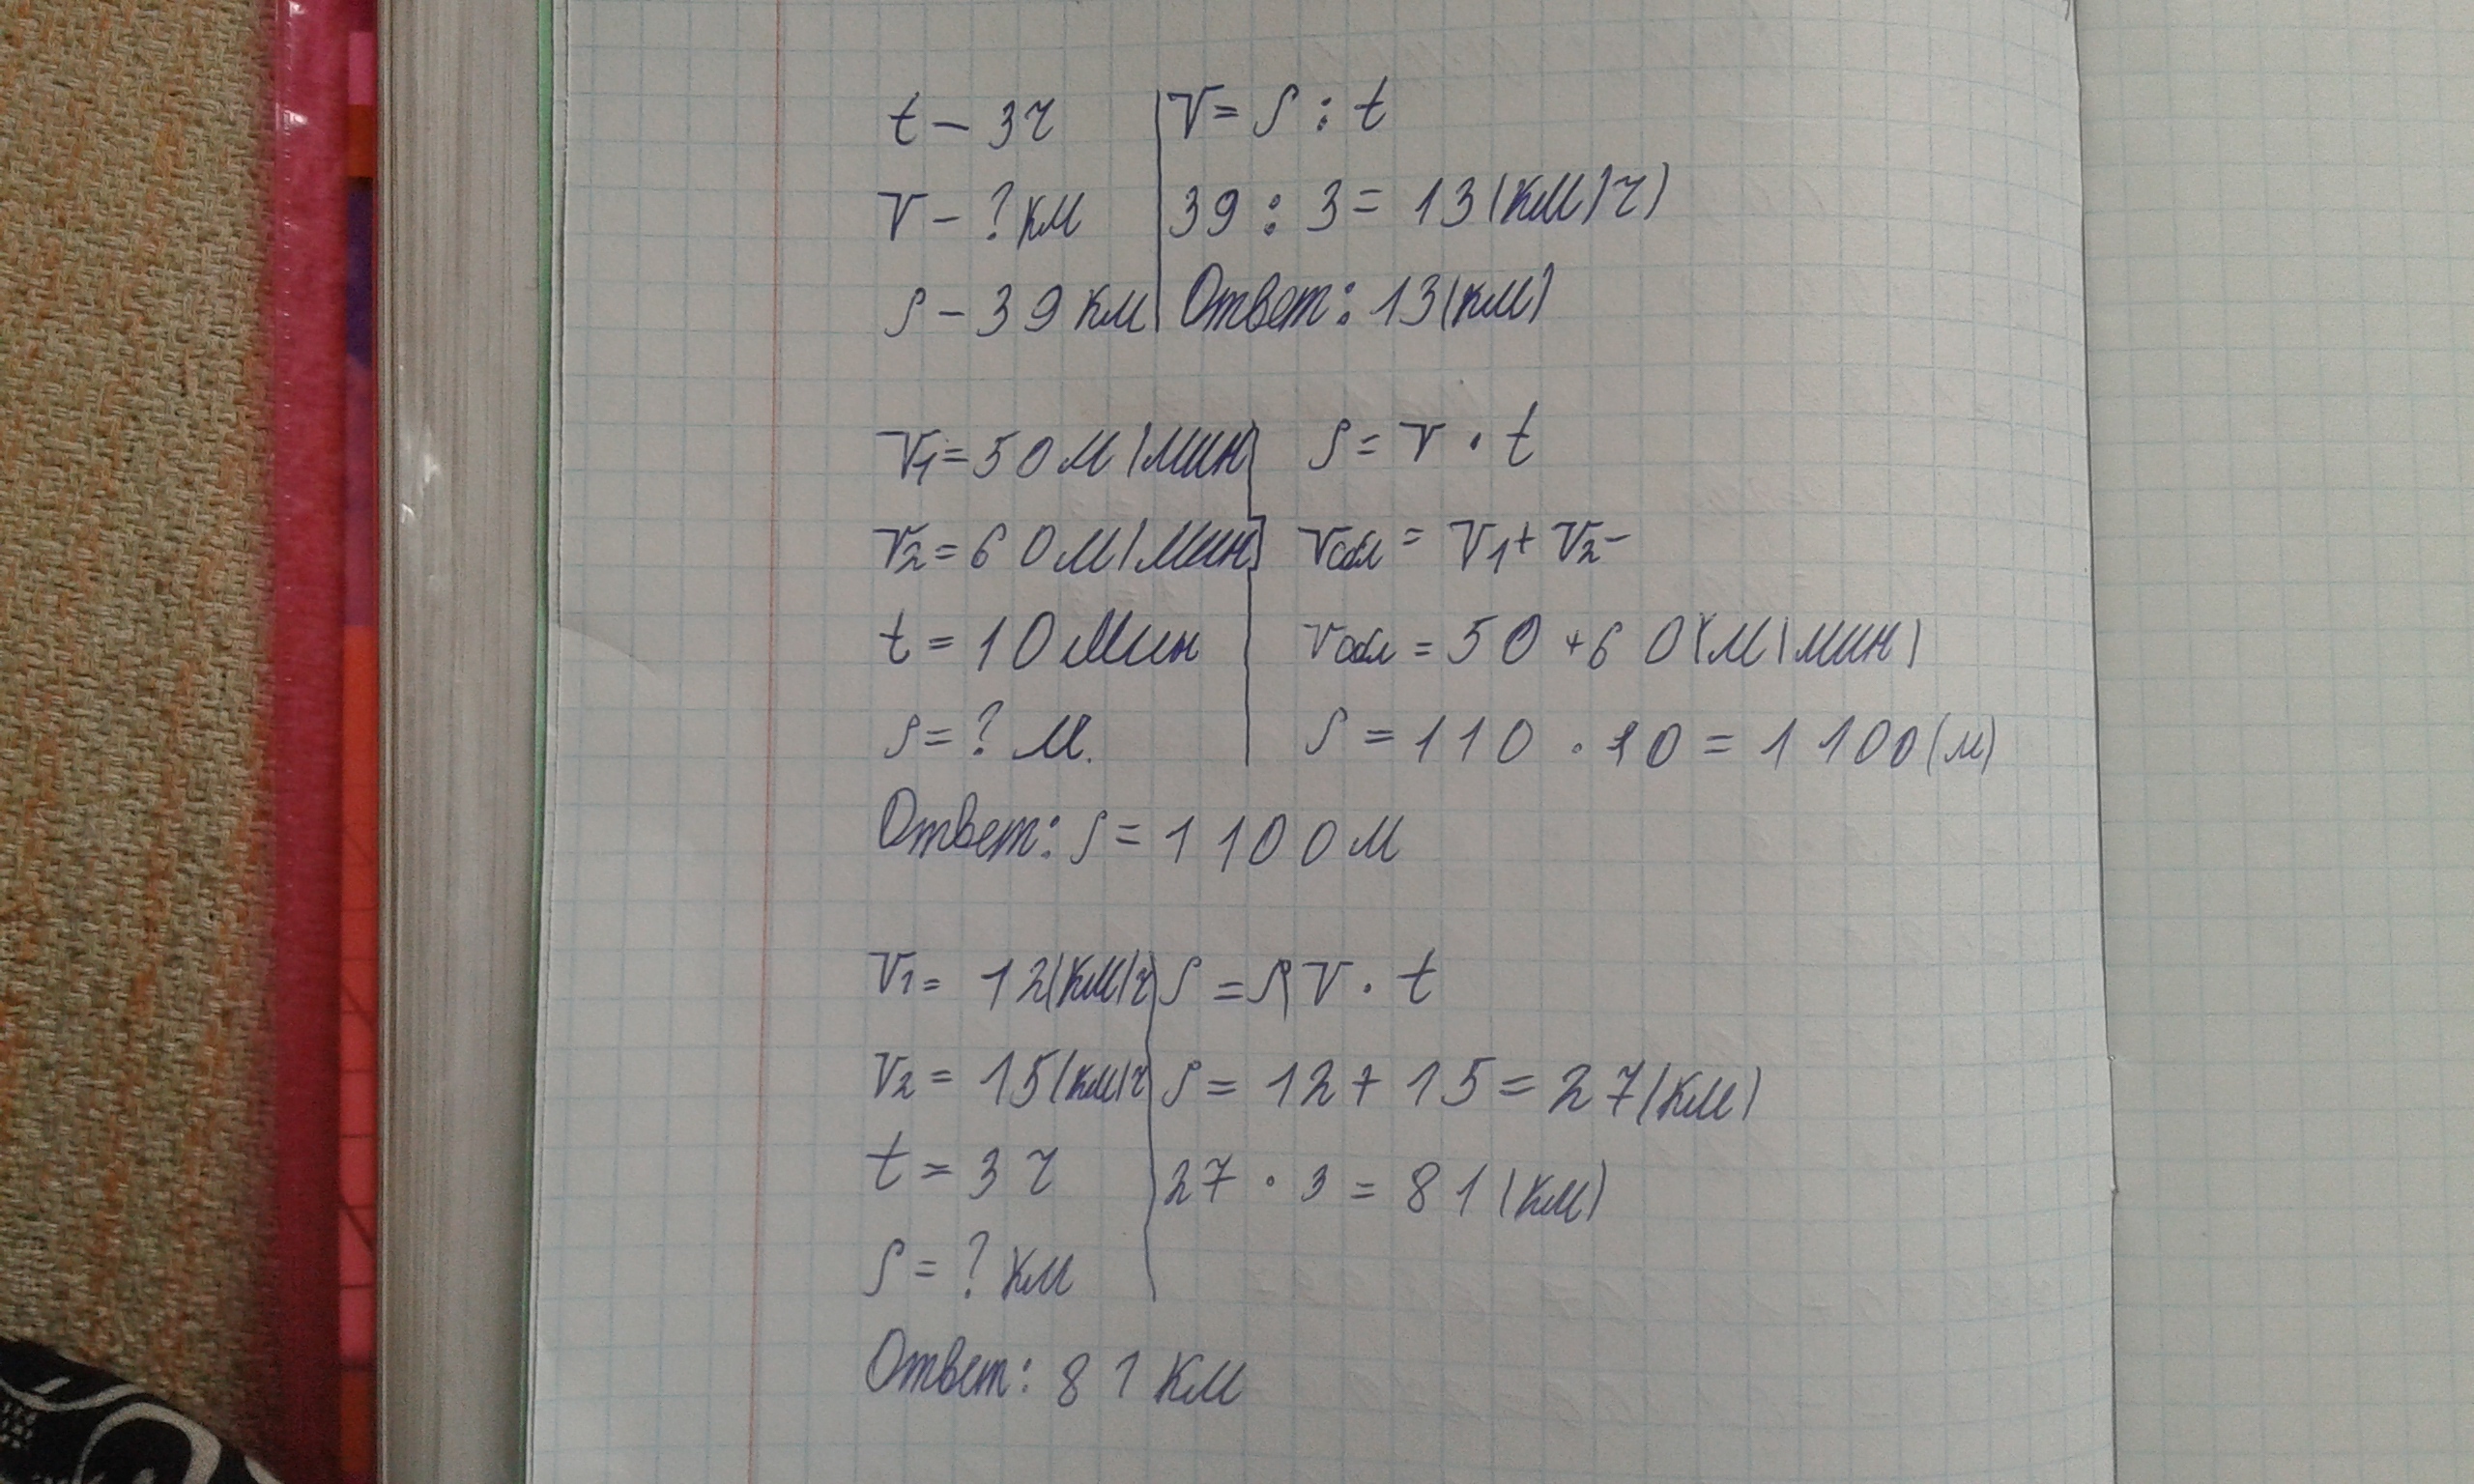 t – 3ч
V = S : t
V – ? км
39 : 3 = 13 (км/ч)
S – 39 км
Ответ: 13 (км)
V1 = 50 м/мин
S = V · t
V2 = 60 м/мин
Vсбл = V1 + V2 -
t = 10 мин
Vсбл = 50 + 60 (м/мин)
S = ? м.
S = 110 · 10 = 1100 (м)
Ответ: S = 1100 м
V1 = 12 (км/ч
S = V · t
V2 = 15 (км/ч
S = 12 + 15 = 27 (км)
t = 3 ч
27 · 3 = 81 (км)
S = ? км
Ответ: 81 км